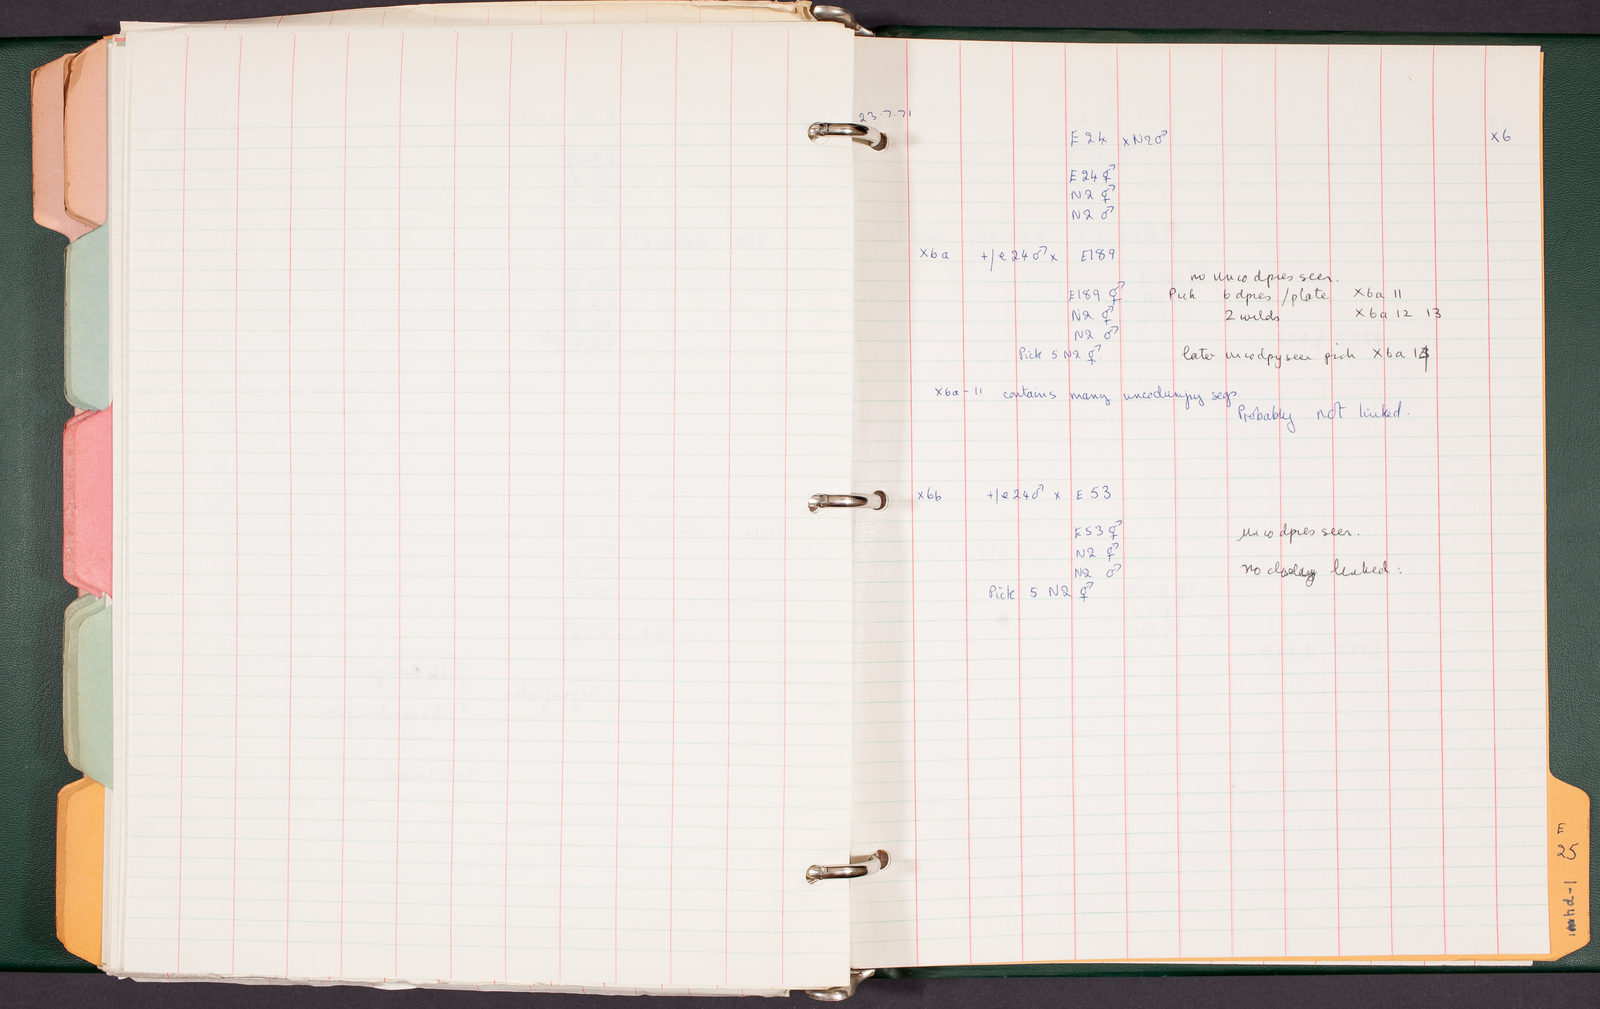 23.7.71
E 24 x N2♂ x6
E 24 ⚥
N2 ⚥
N2 ♂
x6a +/e24♂ x E189
no unco dpies seen.
E189 ⚥ Pick 6 dpies /plate x6a 11
N2 ⚥ 2 wilds x6a 12 13
N2 ♂
Pick 5 N2 ⚥. later uncodpy seen pick x6a 14
x6a-11 contains many uncodumpy segs
Probably not linked.
x6b +/e24♂ x E 53
E53 ⚥ unco dpies seen.
N2 ⚥
N2 ♂ no linked.
Pick 5 N2 ⚥
E
25